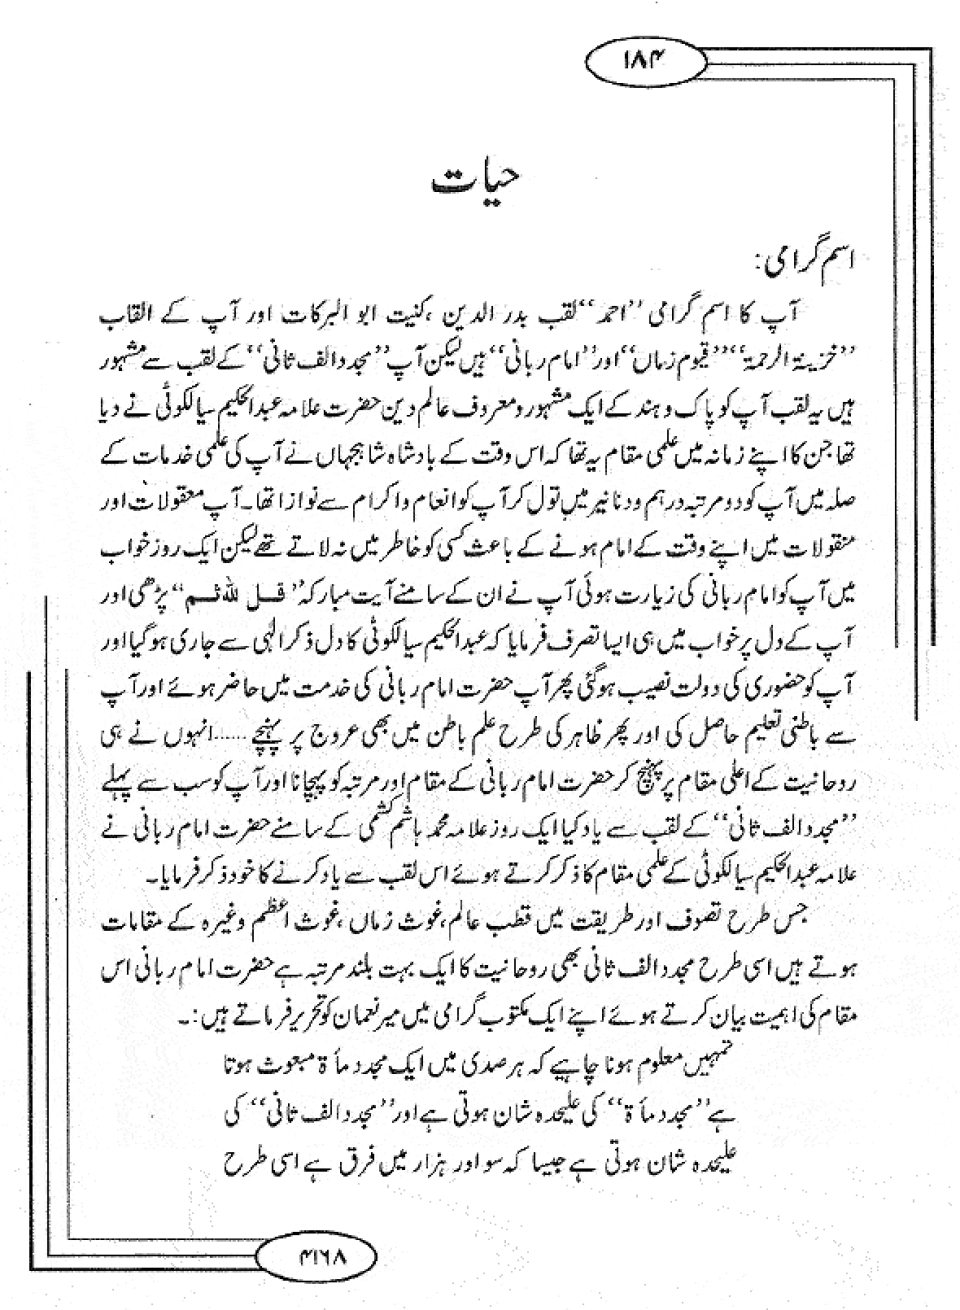 ۱۸۴
حیات
اسم گرامی:
آپ کا اسم گرامی ’’احمد‘‘ لقب بدر الدین ،کنیت ابو البرکات اور آپ کے القاب
’’خزینۃ الرحمۃ‘‘ ’’قیوم زماں‘‘ اور ’’امام ربانی‘‘ ہیں لیکن آپ ’’مجدد الف ثانی‘‘ کے لقب سے مشہور
ہیں یہ لقب آپ کو پاک و ہند کے ایک مشہور و معروف عالم دین حضرت علامہ عبدالحکیم سیالکوٹی نے دیا
تھا جن کا اپنے زمانہ میں علمی مقام یہ تھا کہ اس وقت کے بادشاہ شاہجہاں نے آپ کی علمی خدمات کے
صلہ میں آپ کو دو مرتبہ درہم و دنانیر میں تول کر آپ کو انعام و اکرام سے نوازا تھا۔ آپ معقولات اور
منقولات میں اپنے وقت کے امام ہونے کے باعث کسی کو خاطر میں نہ لاتے تھے لیکن ایک روز خواب
میں آپ کو امام ربانی کی زیارت ہوئی آپ نے ان کے سامنے آیت مبارکہ ’’قل للہ ثم‘‘ پڑھی اور
آپ کے دل پر خواب میں ہی ایسا تصرف فرمایا کہ عبدالحکیم سیالکوٹی کا دل ذکر الٰہی سے جاری ہو گیا اور
آپ کو حضوری کی دولت نصیب ہو گئی پھر آپ حضرت امام ربانی کی خدمت میں حاضر ہوئے اور آپ
سے باطنی تعلیم حاصل کی اور پھر ظاہر کی طرح علم باطن میں بھی عروج پر پہنچے ......انہوں نے ہی
روحانیت کے اعلیٰ مقام پر پہنچ کر حضرت امام ربانی کے مقام اور مرتبہ کو پہچانا اور آپ کو سب سے پہلے
’’مجدد الف ثانی‘‘ کے لقب سے یاد کیا ایک روز علامہ محمد ہاشم کشمی کے سامنے حضرت امام ربانی نے
علامہ عبدالحکیم سیالکوٹی کے علمی مقام کا ذکر کرتے ہوئے اس لقب سے یاد کرنے کا خود ذکر فرمایا۔
جس طرح تصوف اور طریقت میں قطب عالم،غوث زماں ،غوث اعظم وغیرہ کے مقامات
ہوتے ہیں اسی طرح مجدد الف ثانی بھی روحانیت کا ایک بہت بلند مرتبہ ہے حضرت امام ربانی اس
مقام کی اہمیت بیان کرتے ہوئے اپنے ایک مکتوب گرامی میں میر نعمان کو تحریر فرماتے ہیں:۔
تمہیں معلوم ہونا چاہیے کہ ہر صدی میں ایک مجدد مأۃ مبعوث ہوتا
ہے ’’مجدد مأۃ‘‘ کی علیحدہ شان ہوتی ہے اور ’’مجدد الف ثانی‘‘ کی
علیحدہ شان ہوتی ہے جیسا کہ سو اور ہزار میں فرق ہے اسی طرح
۴۱۶۸